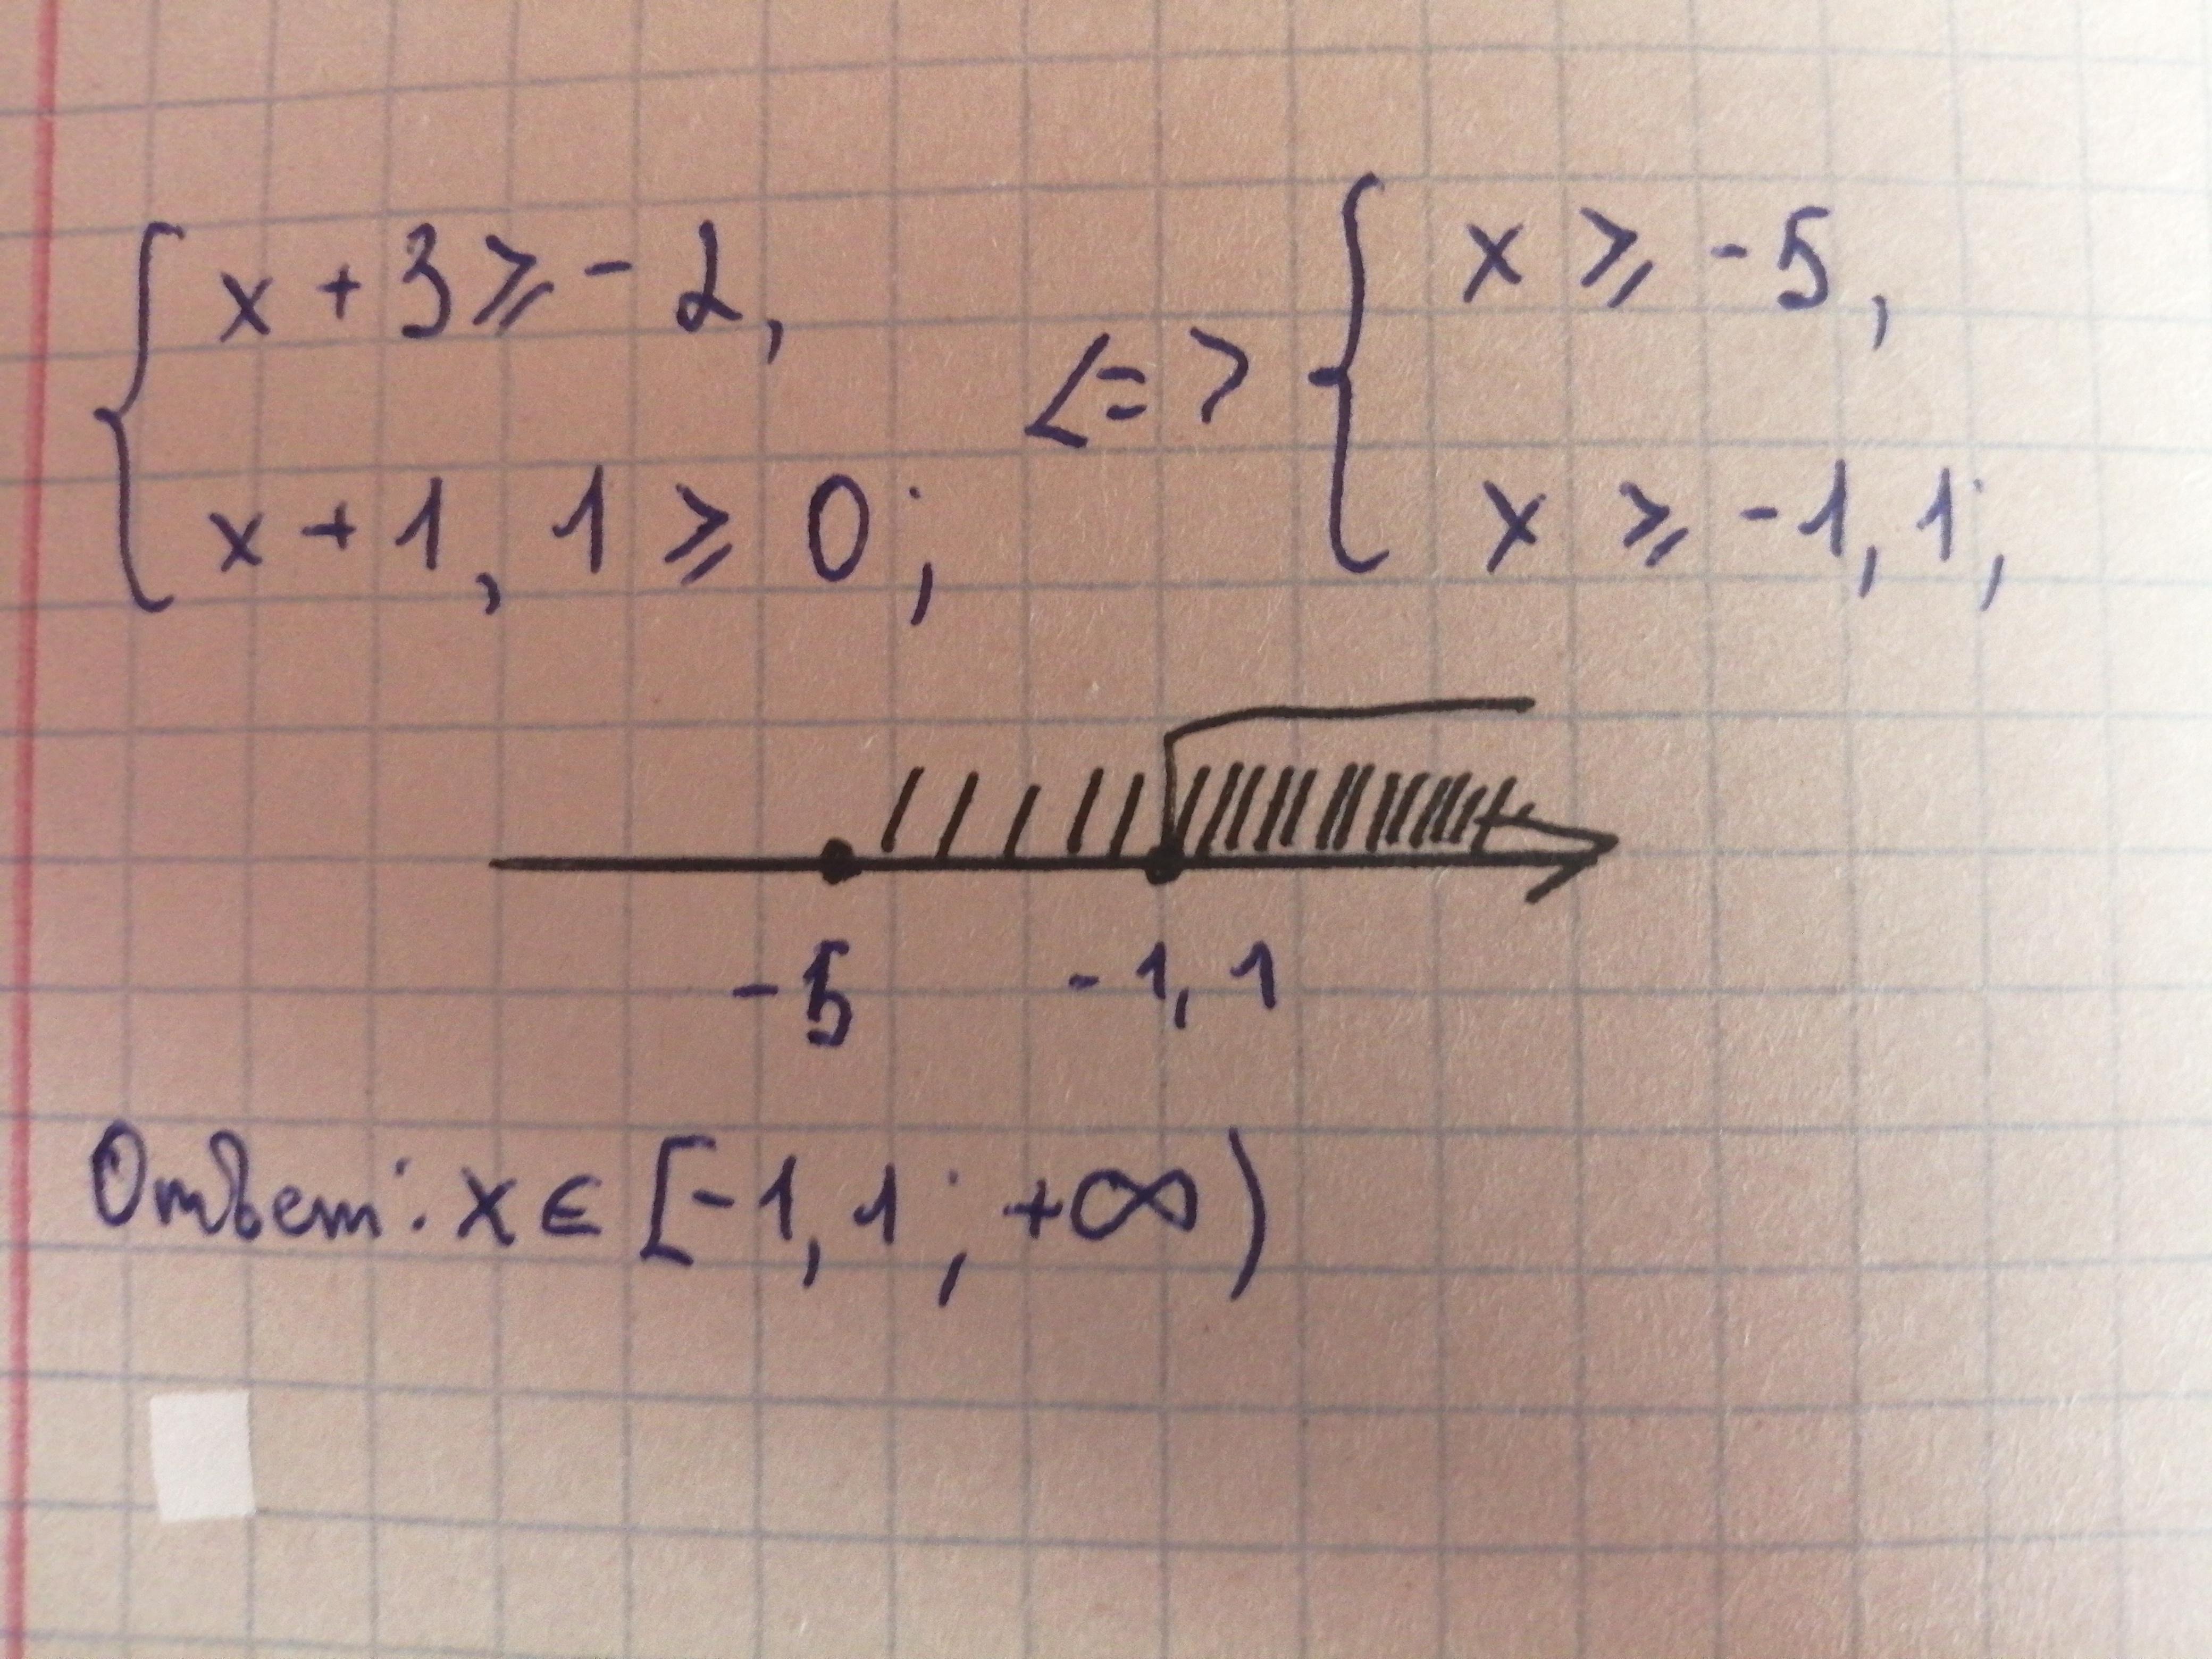 x + 3 ⩾ - 2, <=> x ⩾ -5,
x + 1, 1 ⩾ 0; x ⩾ -1, 1;
-5 -1, 1
Ответ: x ∈ [-1, 1; +∞)